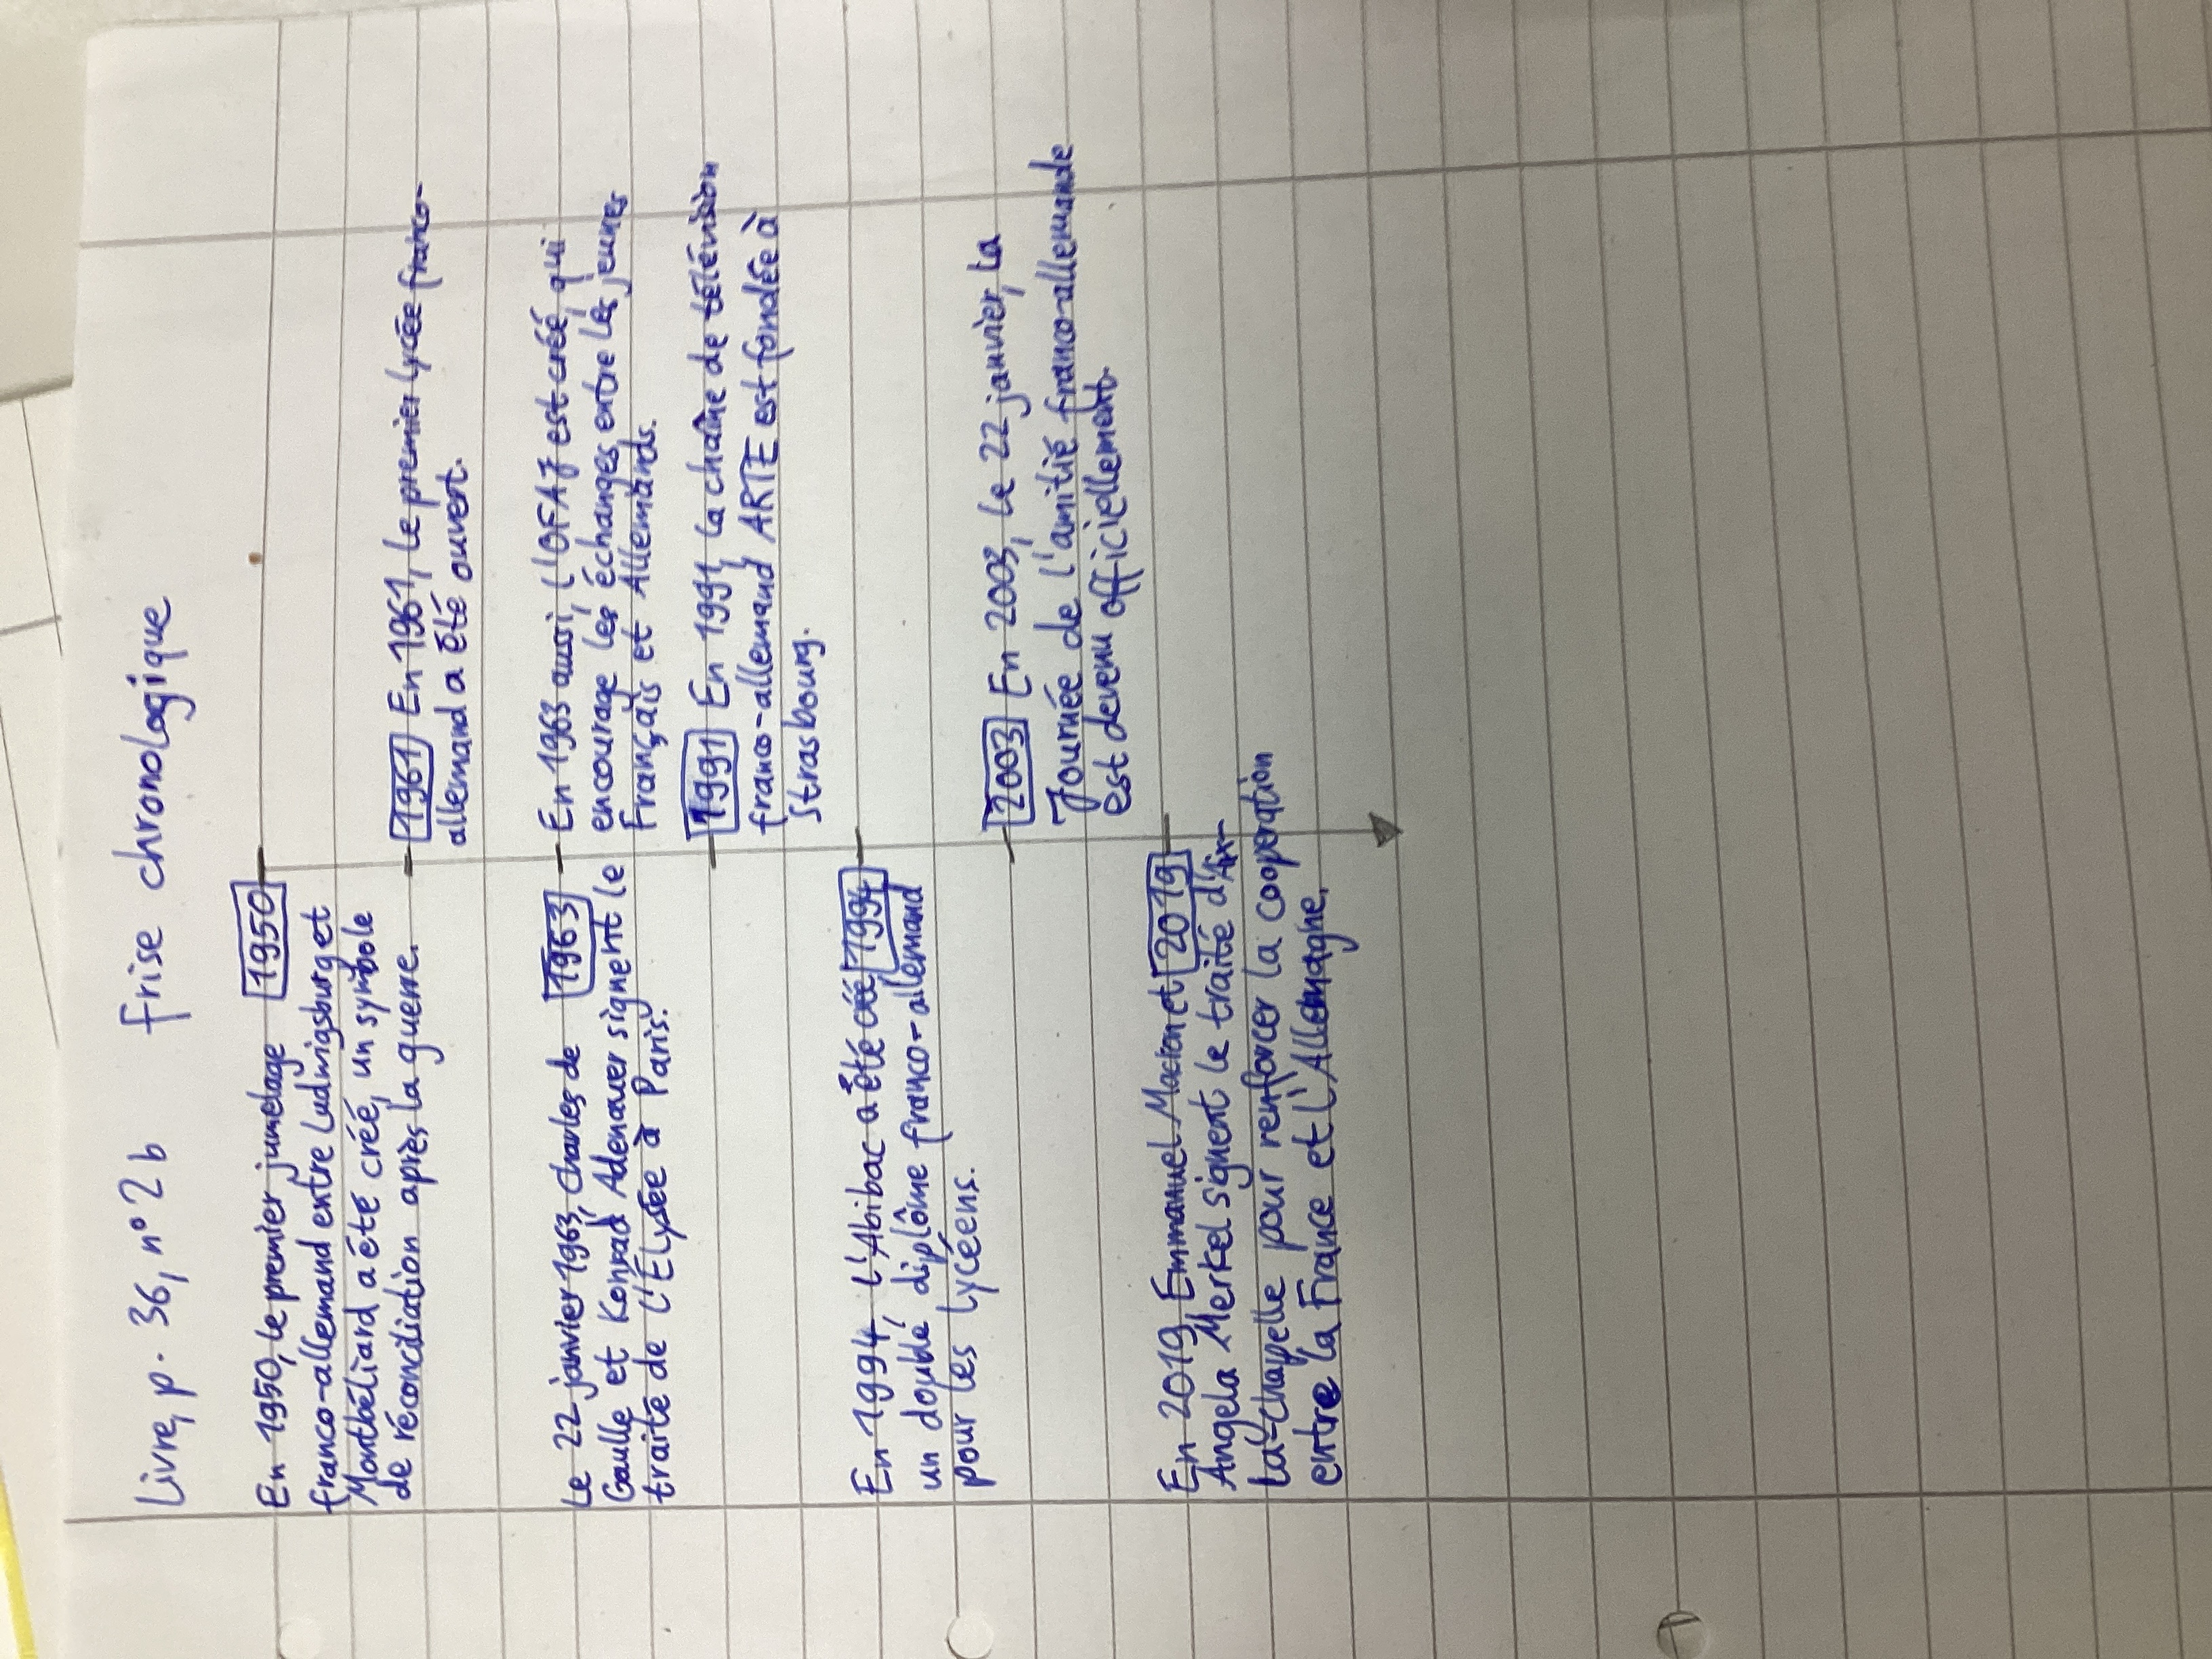 Livre, p. 36, n° 2b   frise chronologique
1950
En 1950, le premier jumelage
franco-allemand entre Ludwigsburg et
Montbéliard a été créé, un symbole
de réconciliation après la guerre.
1961 En 1961, le premier lycée franco-
allemand a été ouvert.
1963
Le 22 janvier 1963, Charles de
Gaulle et Konrad Adenauer signent le
traité de l'Elysée à Paris.
En 1963 aussi, l'OFAJ est créé, qui
encourage les échanges entre les jeunes
Français et Allemands.
1991 En 1991, la chaîne de télévision
franco-allemand ARTE est fondée à
Strasbourg.
1994
En 1994, l'Abibac a été céé,
un double diplôme franco-allemand
pour les lycéens.
2003 En 2003, le 22 janvier, la
Journée de l'amitié franco-allemande
est devenu officiellement.
2019
En 2019, Emmanuel Macron et
Angela Merkel signent le traité d'Aix-
la-Chapelle pour renforcer la cooperation
entre la France et l'Allemagne.